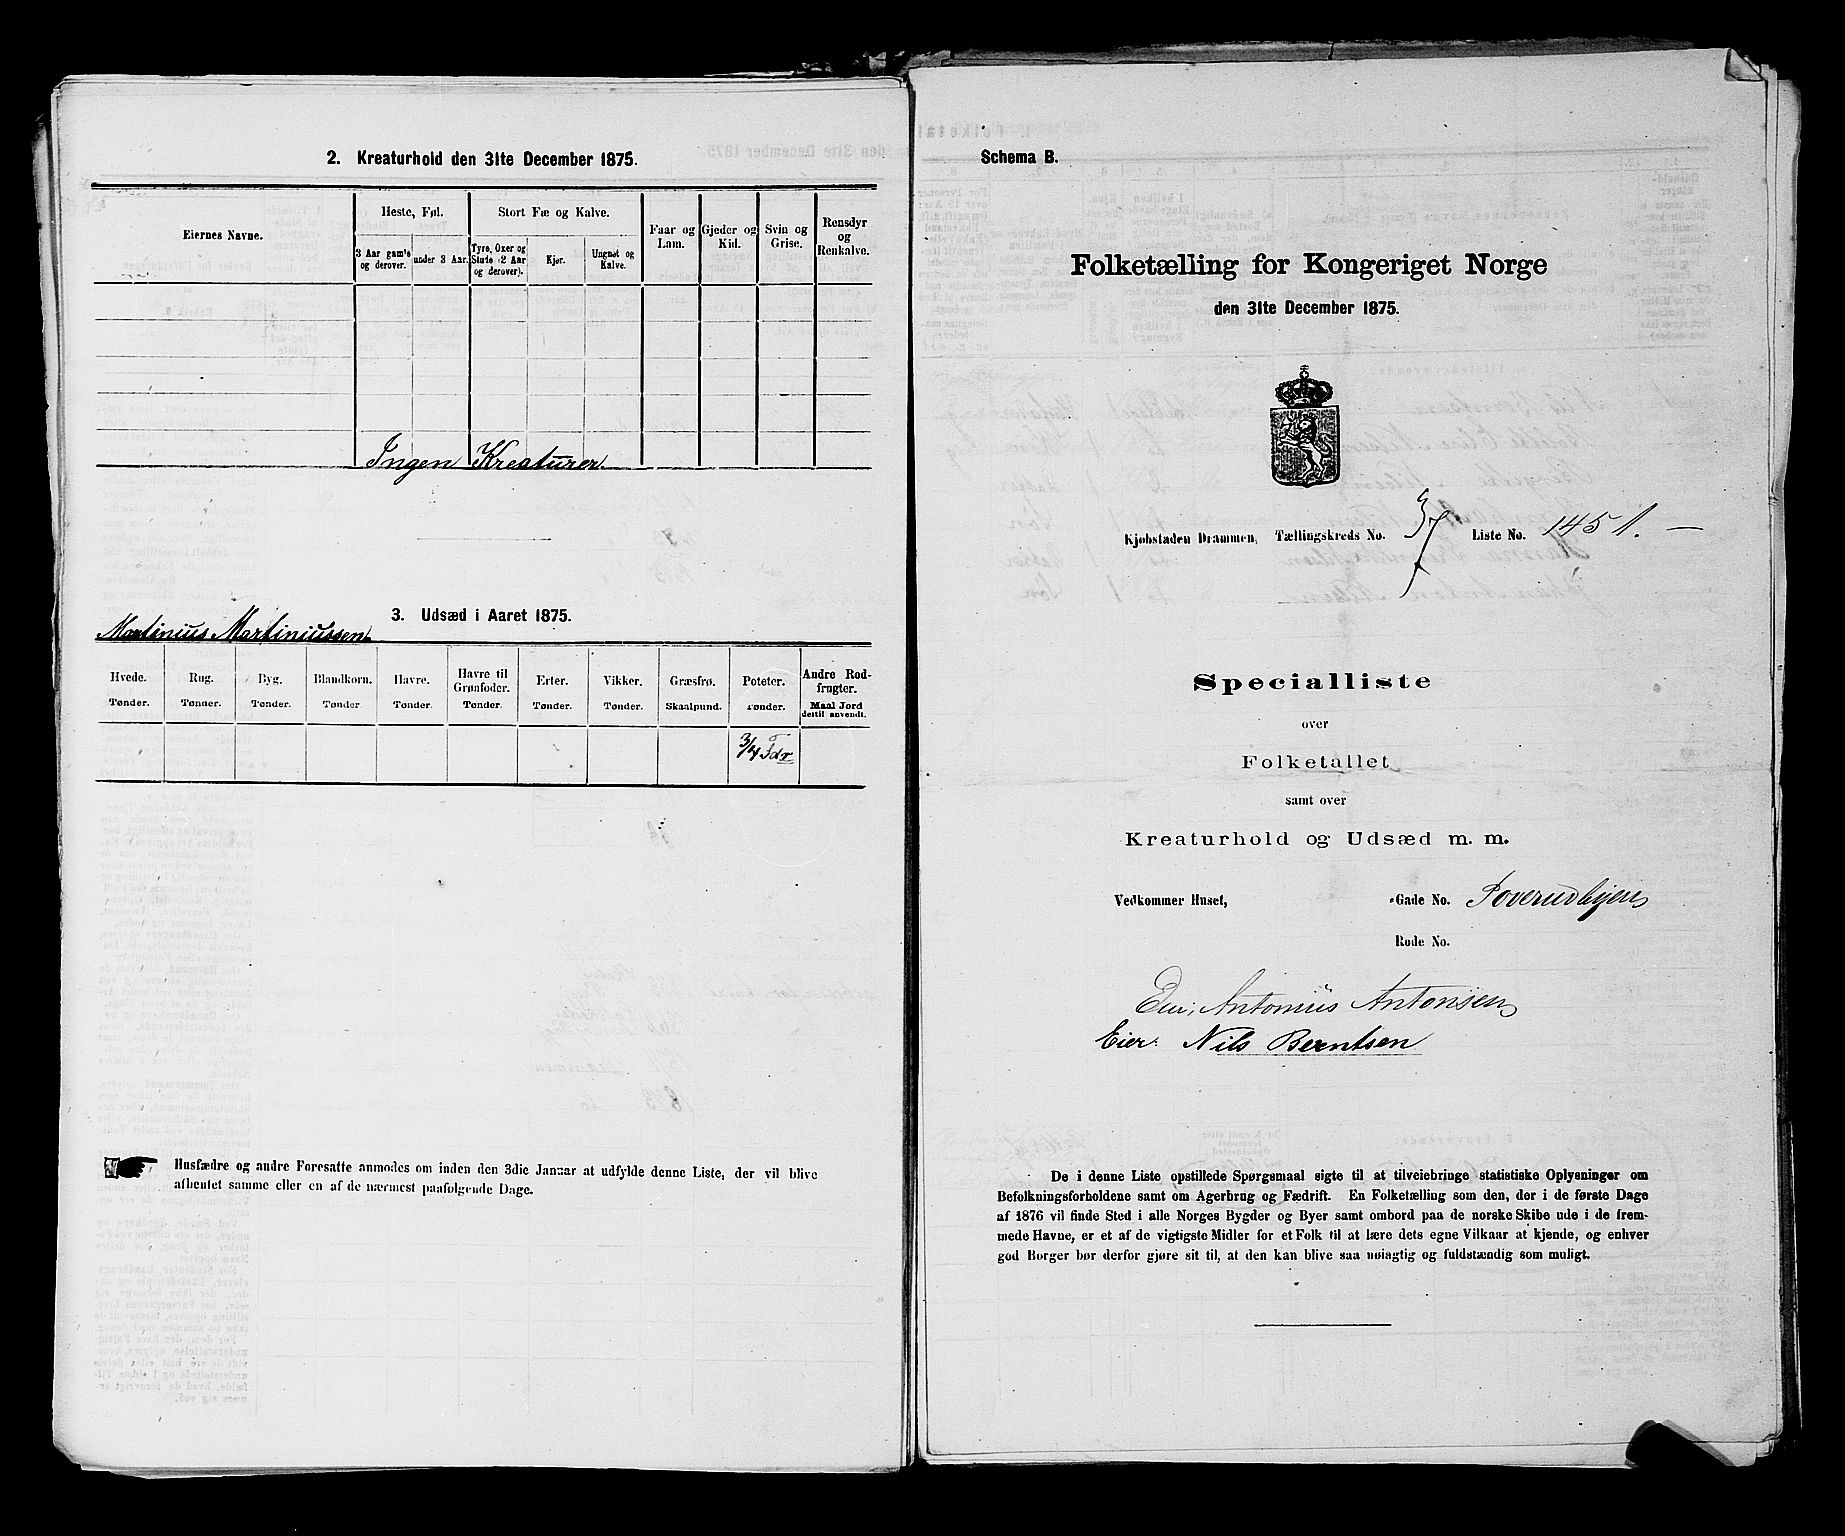 2. Kreaturhold den 31te December 1875.
Eiernes Navne.
Heste, Føl.
Stort Fæ og Kalve.
Faar og Lam.
Gjeder og Kid.
Svin og Grise.
Rensdyr og Renkalve.
3 Aar gamle og derover.
under 3 Aar.
Tyre, Oxer og Stude (2 Aar og derover).
Kjør.
Ungnøt og Kalve.
Ingen Kreaturer.
3. Udsæd i Aaret 1875.
Martinius Martiniussen
Hvede. Rug. Byg. Blandkorn. Havre. Havre til Grønfoder. Erter. Vikker. Græsfrø. Poteter. Andre Rodfrugter.
Tønder. Tønder. Tønder. Tønder. Tønder. Tønder. Tønder. Tønder. Skaalpund. Tønder. Maal Jord dertil anvendt.
3/4 Tdr
Husfædre og andre Foresatte anmodes om inden den 3die Januar at udfylde denne Liste, der vil blive
afhentet samme eller en af de nærmest paafølgende Dage.
Schema B.
Folketælling for Kongeriget Norge
den 31te December 1875.
Kjøbstaden Drammen, Tællingskreds No. 37 Liste No. 1451.
Specialliste
over
Folketallet
samt over
Kreaturhold og Udsæd m. m.
Vedkommer Huset, Gade No. Toverudbyen
Rode No.
Eier, Antonius Antonsen
Eier: Nils Berntsen
De i denne Liste opstillede Spørgsmaal sigte til at tilveiebringe statistiske Oplysninger om
Befolkningsforholdene samt om Agerbrug og Fædrift. En Folketælling som den, der i de første Dage
af 1876 vil finde Sted i alle Norges Bygder og Byer samt ombord paa de norske Skibe ude i de frem-
mede Havne, er et af de vigtigste Midler for et Folk til at lære dets egne Vilkaar at kjende, og enhver
god Borger bør derfor gjøre sit til, at den kan blive saa nøiagtig og fuldstændig som muligt.